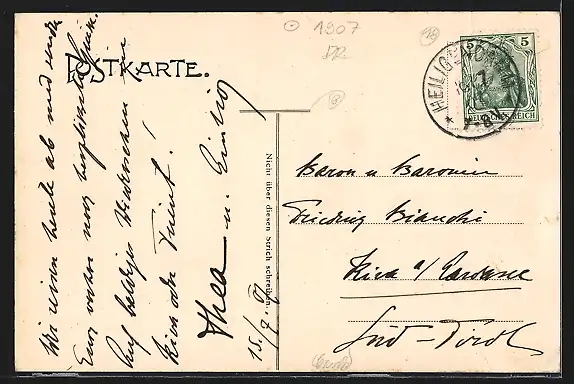 POSTKARTE.
Wir reisen heute ab und
Euch vorher noch herzliche Grüsse.
Auf baldiges Wiedersehen in
Riva oder Trient!
Thea u.
15./7. 07
Nicht über diesen Strich schreiben.
1907
5 5
DEUTSCHES REICH
7-8
Baron u Baronin
Friedrig Bianchi
Riva a/ Gardasee
Süd-Tirol